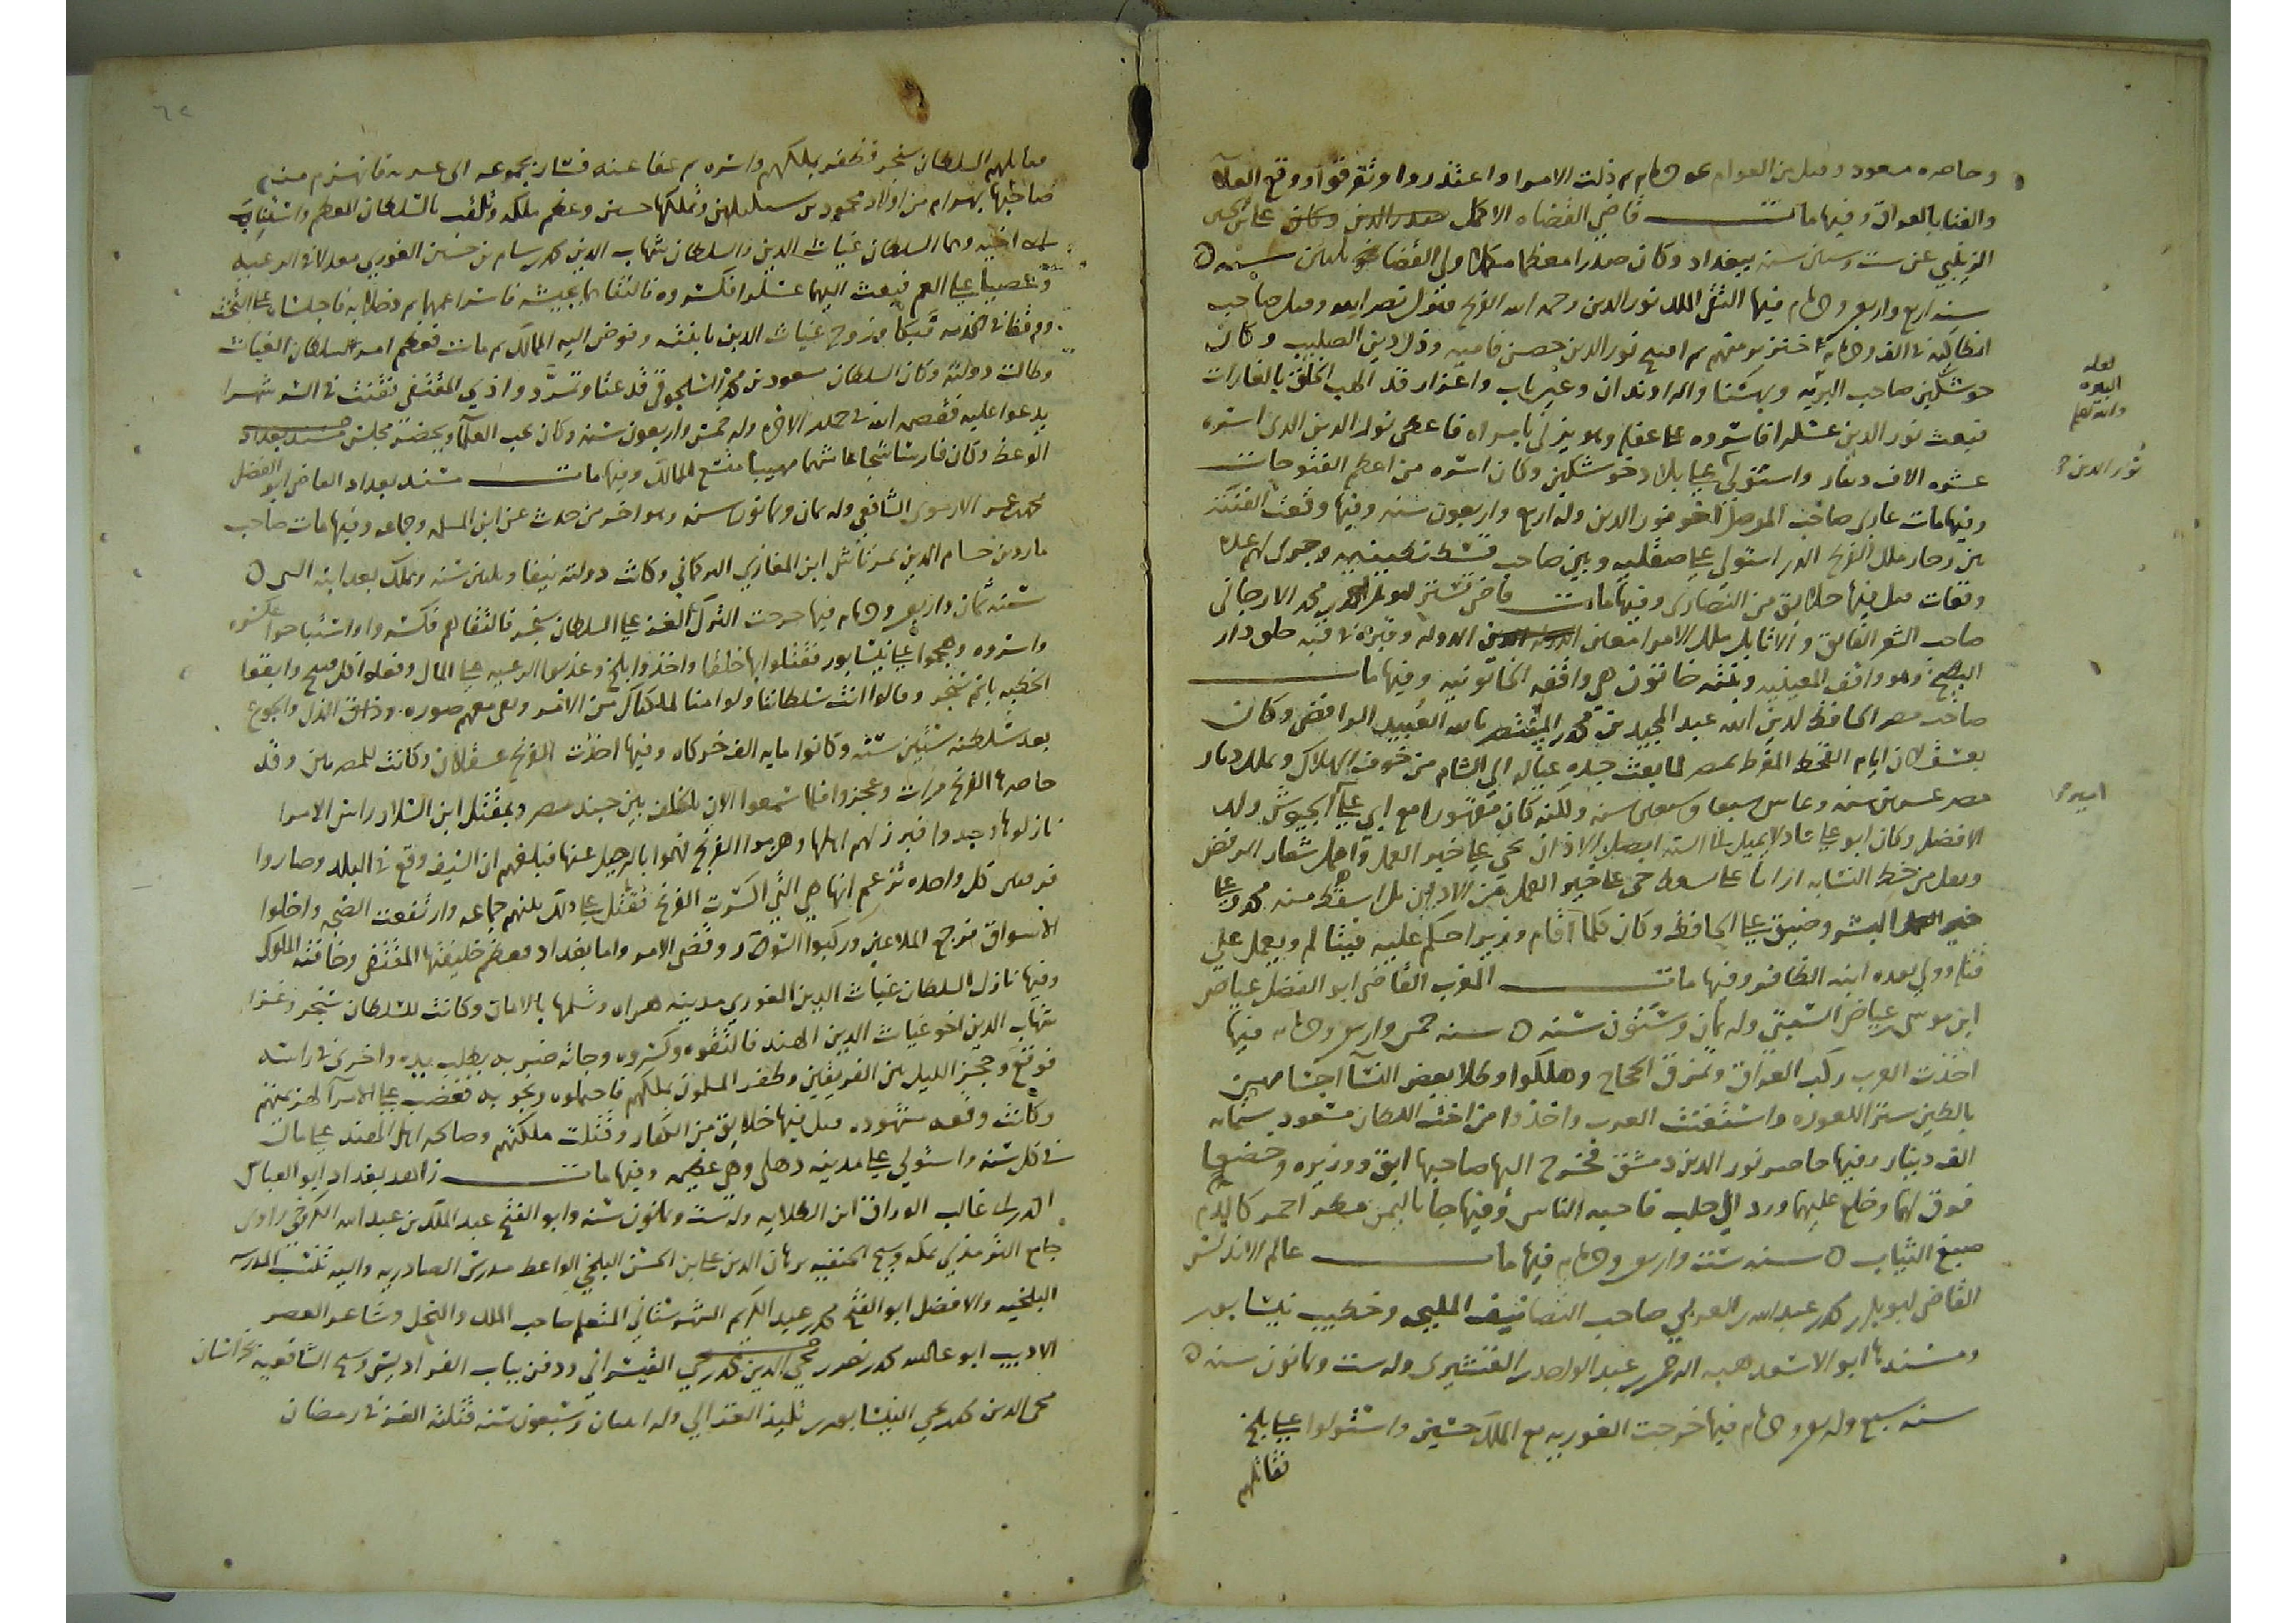 وحاصره مسعود وقتل من العوام نحو خمسمايه ثم ذلت الامرا واعتذروا وتفرقوا ووقع الغلا
والفنا بالعراق وفيها مات قاضي القضاه الاكمل علي بن الحسين
الزينبي عن ست وستين سنه ببغداد وكان صدرا معظما ولي القضا نحو ثلثين سنه
سنه اربع واربعين وخمسمايه فيها التقى الملك نور الدين رحمه الله الفرنج فنزل نصر الله وقتل صاحب
انطاكيه في الف وخمسمايه منهم ثم افتتح نور الدين حصن فاميه وذل دين الصليب وكان
جوشلكين صاحب البيره وبهسنا والراوندان وعين تاب واعزاز قد الهب الخلق بالغارات
فبعث نور الدين عسكرا فاسروه فاعطى نور الدين الذي اسره
عشره الاف دينار واستولى على بلاد جوشلكين وكان اسره من اعظم الفتوحات
وفيها مات غازي صاحب الموصل اخو نور الدين وله اربع واربعون سنه وفيها وقعت الفتنه
بين رجار ملك الفرنج الذي استولى على صقليه وبين صاحب قسطنطينيه وجرى لهم عده
وقعات قتل فيها خلايق من النصارى وفيها مات قاضي تستر ابو بكر احمد بن محمد الارجاني
صاحب الشعر الفايق والاتابك ملك الامرا معين الدين انر وقبره في قبه خلف دار
البطيخ وهو واقف المعينيه وبنته خاتون هي واقفه الخاتونيه وفيها مات
صاحب مصر الحافظ لدين الله عبد المجيد بن محمد بن المستنصر بالله العبيدي الرافضي وكان
بعسقلان ايام القحط المفرط بمصر لما بعث جده عياله الى الشام من خوف الهلاك وملك ديار
مصر عشرين سنه وعاش سبعا وسبعين سنه ولكنه كان مقهورا مع ابي علي امير الجيوش ولد
الافضل وكان ابو علي عادلا يميل الى السنه ابطل من الاذان حي على خير العمل واهمل شعار الرفض
البشر وضيق على الحافظ وكان كلما اقام وزيرا حكم عليه فيتالم ويعمل على
قتله وولي بعده ابنه الظافر وفيها مات المغرب القاضي ابو الفضل عياض
ابن موسى بن عياض السبتي وله ثمان وستون سنه سنه خمس واربعين وخمسمايه فيها
اخذت العرب ركب العراق وتمزق الحجاج وهلكوا وطلا بعض النسا اجسامهن
بالطين ستر اللعوره واستغنت العرب واخذوا من اخت السلطان مسعود بمايه
الف دينار وفيها حاصر نور الدين دمشق فخرج اليها صاحبها ابق ووزيره وخضعا
فرق لهما وخلع عليهما ورد الى حلب فاحبه الناس وفيها جا باليمن مطر احمر كالدم
صبغ الثياب سنه ست واربعين وخمسمايه فيها مات عالم الاندلس
القاضي ابو بكر محمد بن عبد الله بن العربي صاحب التصانيف المليحه وخطيب نيسابور
ومسندها ابو الاسعد هبه الرحمن بن عبد الواحد بن القشيري وله ست وثمانون سنه
سنه سبع واربعين وخمسمايه فيها خرجت الغوريه مع الملك حسين واستولوا على بلخ
فقاتلهم
لعله
البيره
والله اعلم
نور الدين
امير
٦٢
فقاتلهم السلطان سنجر فظفر بملكهم واسره ثم عفا عنه فسار بجموعه الى غزنه فانهزم منه
صاحبها بهرام من اولاد محمود بن سبكتكين وتملكها حسين وعظم ملكه وتلقب بالسلطان المعظم واستناب
ابني اخيه وهما السلطان غياث الدين والسلطان شهاب الدين محمد بن سام بن حسين الغوري فعدلا في الرعيه
وعصيا على العم فبعث اليهما عسكرا فكسروه فالتقاهما بجيشه فاسرا عمهما ثم وضلا به فاجلساه على التخت
ووقفا في الخدمه فبكا وزوج غياث الدين بابنته وفوض اليه الممالك ثم مات فعظم امر السلطان الغياث
وطالت دولته وكان السلطان مسعود بن محمد السلجوقي قد عتا وتمرد واذى المقتفي فقنت في السر شهرا
يدعو عليه فقصمه الله في جمادى الاخره وله خمس واربعون سنه وكان يحب العلما ويحضر مجلس
الوعظ وكان فارسا شجاعا شهما مهيبا متسع الممالك وفيها مات مسند بغداد القاضي ابو الفضل
محمد بن عمر الارموي الشافعي وله ثمان وثمانون سنه وهو اخر من حدث عن ابن المسلمه وجماعه وفيها مات صاحب
ماردين حسام الدين تمرتاش ابن الغازي التركماني وكانت دولته نيفا وثلثين سنه وتملك بعد ابنه البي
سنه ثمان واربعين وخمسمايه فيها خرجت الترك الغز على السلطان سنجر فالتقاهم فكسروه واستباحوا عسكره
واسروه وهجموا على نيسابور فقتلوا بها خلقا واخذوا بلخ وعذبوا الرعيه على المال وفعلوا كل قبيح وابقوا
الخطبه باسم سنجر وقالوا انت سلطاننا ولو امنا لملكناك من الامر وبقي معهم صوره وذاق الذل والجوع
بعد سلطنه ستين سنه وكانوا مايه الف خركاه وفيها اخذت الفرنج عسقلان وكانت للمصريين وقد
حاصرها الفرنج مرات وعجزوا فلما سمعوا الان بالخلف بين جيش مصر وبمقتل ابن السلار راس الامرا
نازلوها وجدوا فبرز لهم اهلها وهربوا الفرنج فهموا بالرحيل عنها فبلغهم ان السيف وقع في البلد وصاروا
فرقتين كل واحده تزعم انها هي التي كسرت الفرنج فقتل على ذلك بينهم جماعه وارتفعت الضجه واخلوا
الاسواق فرجع الملاعين وركبوا السور وقضي الامر واما بغداد فعظم خليفتها المقتفي وخافته الملوك
وفيها نازل السلطان غياث الدين الغوري مدينه هراه وسلمها بالامان وكانت للسلطان سنجر وغزا
شهاب الدين اخو غياث الدين الهند فالتقوه وكسروه وجاته ضربه بطلت يده واخرى في راسه
فوقع وحجز الليل بين الفريقين وظفر المسلمون بملكهم فاحتملوه ونجو به فغضب على الامرا لهزيمتهم
وكانت وقعه مشهوده قتل فيها خلايق من الكفار وقتلت ملكتهم وصالحه اهل الهند على مال
في كل سنه واستولى على مدينه دهلي وهي عظيمه وفيها مات زاهد بغداد ابو العباس
احمد بن ابي غالب الوراق ابن الطلايه وله ست وثمانون سنه وابو الفتح عبد الملك بن عبد الله الكروخي راوي
جامع الترمذي بمكه وشيخ الحنفيه برهان الدين علي بن الحسن البلخي الواعظ مدرس الصادريه واليه تنسب المدرسه
البلخيه والافضل ابو الفتح محمد بن عبد الكريم الشهرستاني المتكلم صاحب الملل والنحل وشاعر العصر
الاديب ابو عبد الله محمد بن نصر بن القيسراني ودفن بباب الفراديس وشيخ الشافعيه بخراسان
محي الدين محمد بن يحيى النيسابوري تلميذ الغزالي وله اثنتان وسبعون سنه قتلته الغز في رمضان